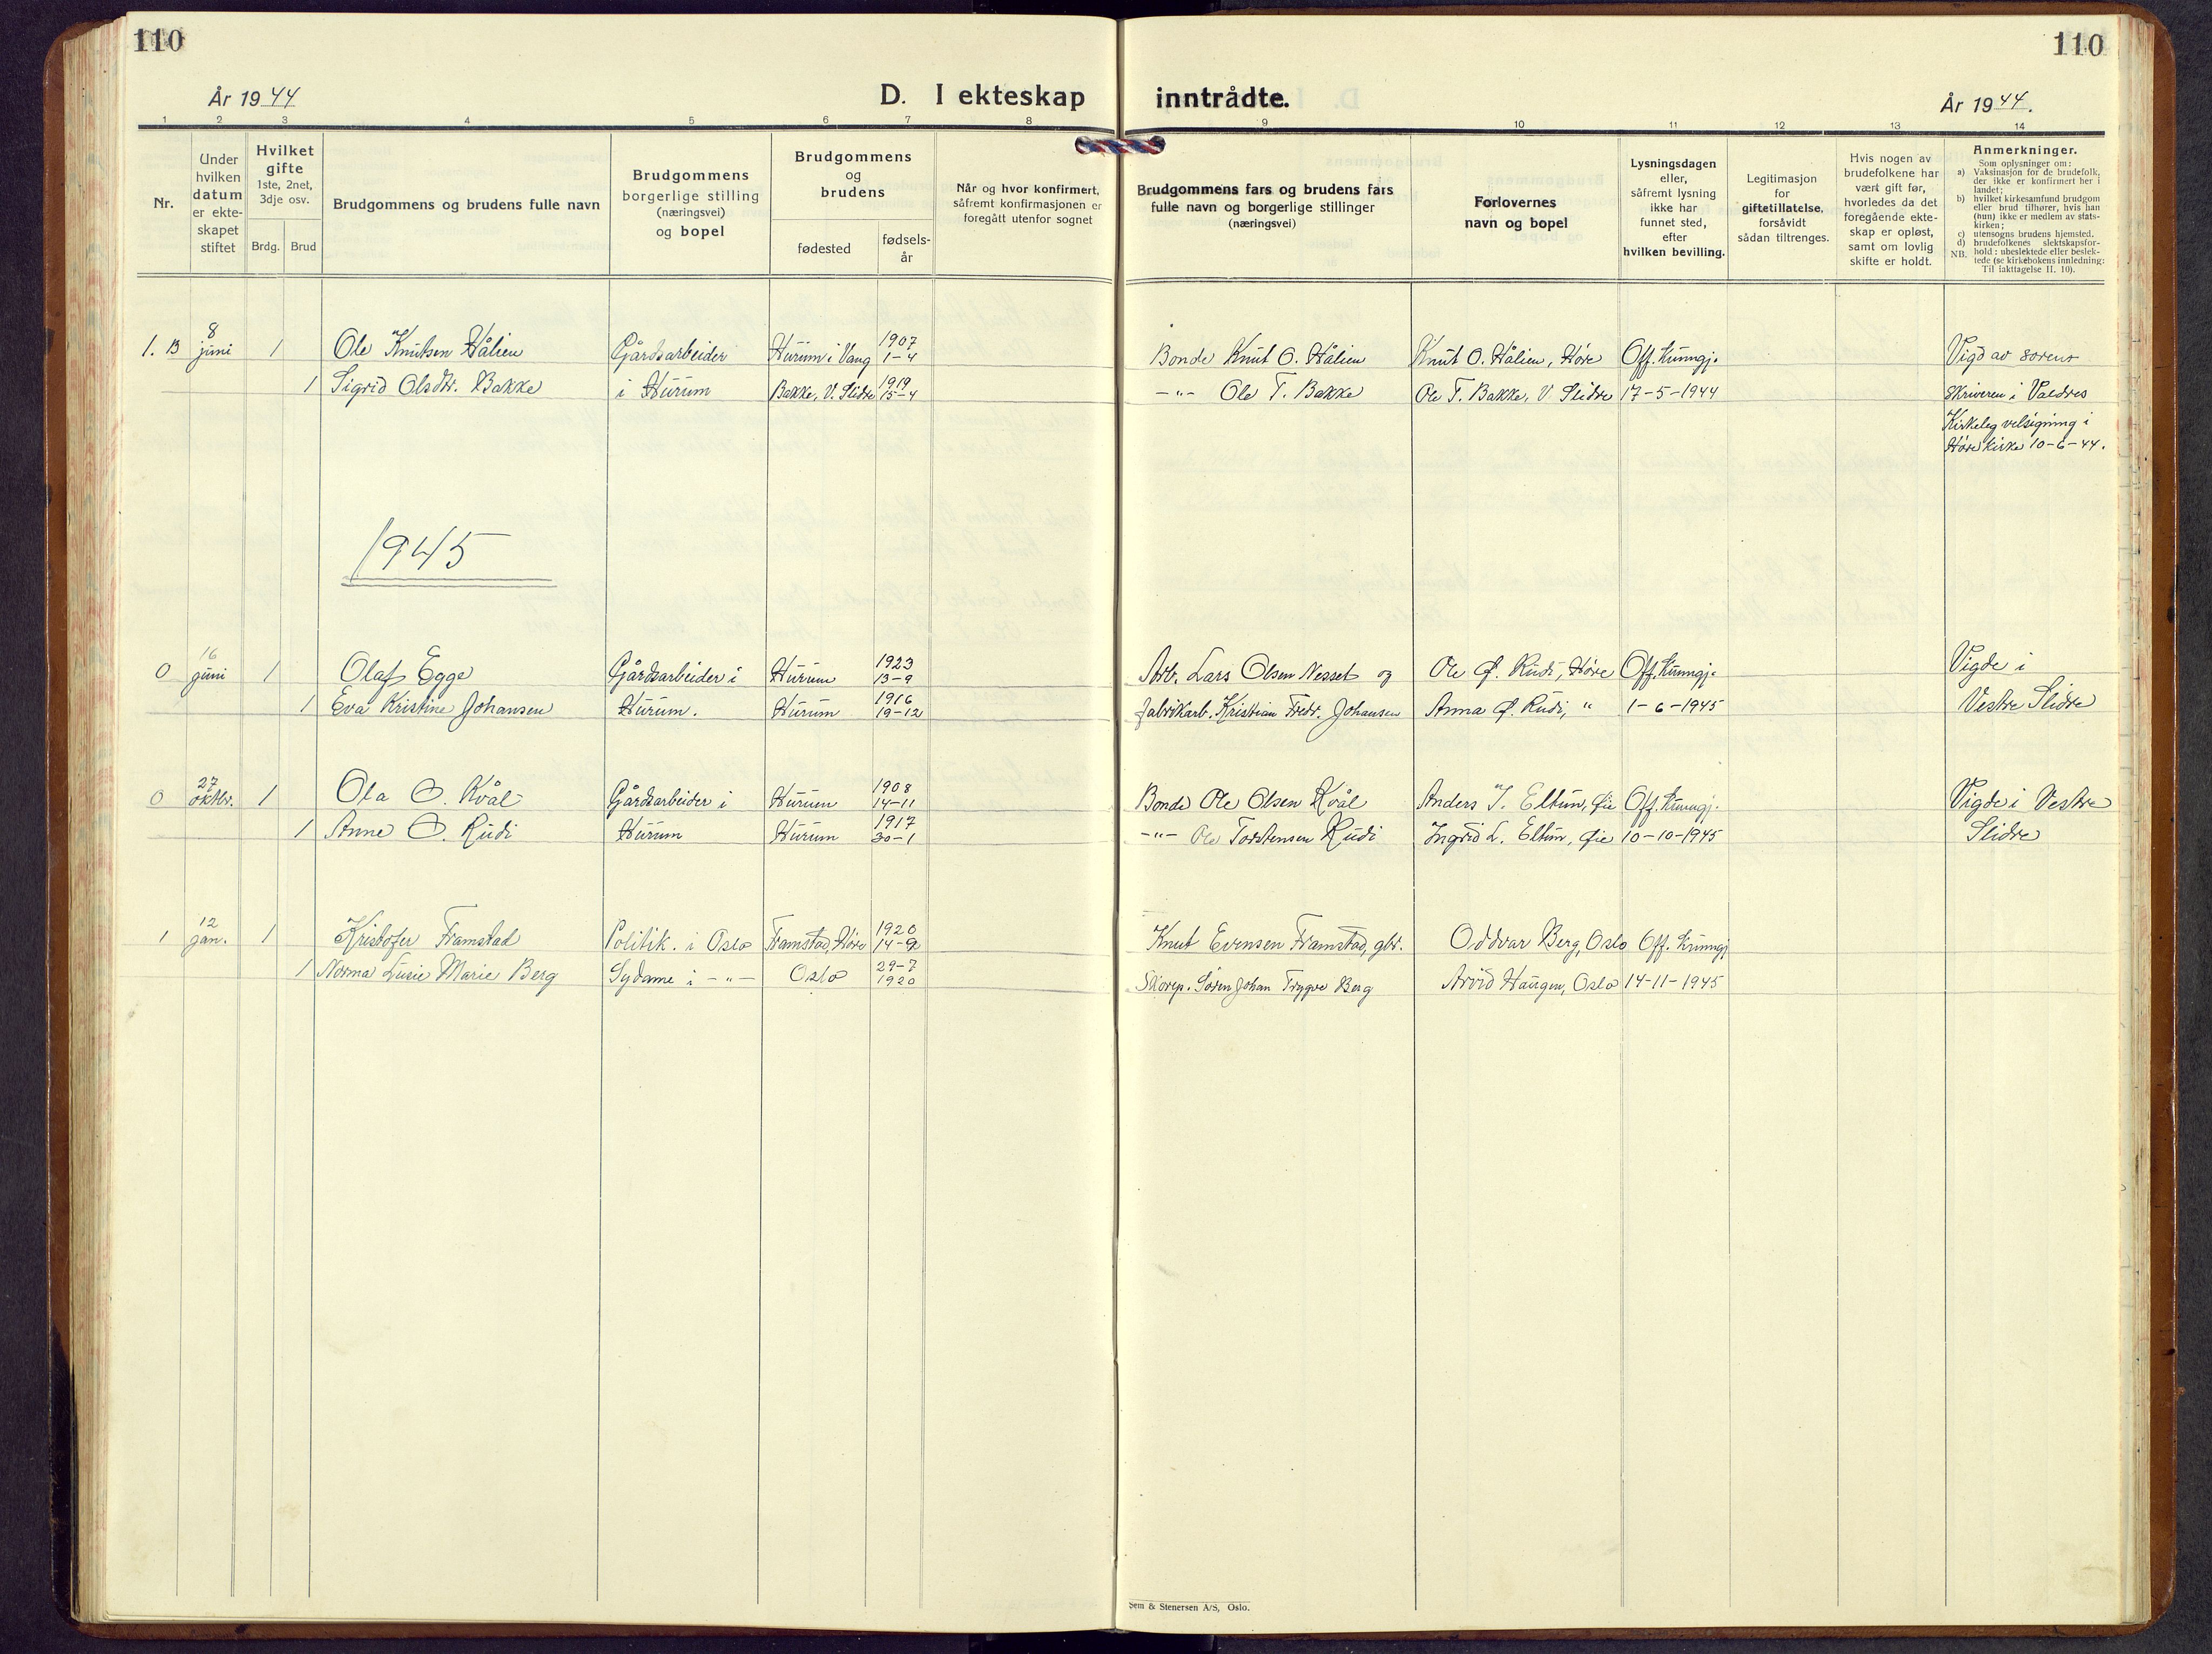 110
110
År 1944
D. I ekteskap inntrådte.
År 1944.
1 2 3 4 5 6 7 8 9 10 11 12 13 14
Nr.
Under hvilken datum er ekte-skapet stiftet
Hvilket gifte 1ste, 2net, 3dje osv.
Brdg. Brud
Brudgommens og brudens fulle navn
Brudgommens borgerlige stilling (næringsvei) og bopel
Brudgommens og brudens
fødested
fødsels-år
Når og hvor konfirmert, såfremt konfirmasjonen er foregått utenfor sognet
Brudgommens fars og brudens fars fulle navn og borgerlige stillinger (næringsvei)
Forlovernes navn og bopel
Lysningsdagen eller, såfremt lysning ikke har funnet sted, efter hvilken bevilling.
Legitimasjon for giftetillatelse, forsåvidt sådan tiltrenges.
Hvis nogen av brudefolkene har vært gift før, hvorledes da det foregående ekte-skap er opløst, samt om lovlig skifte er holdt.
Anmerkninger.
Som oplysninger om:
a) Vaksinasjon for de brudefolk, der ikke er konfirmert her i landet;
b) hvilket kirkesamfund brudgom eller brud tilhører, hvis han (hun) ikke er medlem av stats-kirken;
c) utensogns brudens hjemsted.
d) brudefolkenes slektskapsfor-hold: ubeslektede eller beslek-tede (se kirkebokens innledning: Til iakttagelse II. 10).
NB.
1. B 8 juni 1 Ole Knutsen Hålien Gårdsarbeider Hurum i Vang 1907 1-4 Bonde Knut O. Hålien Knut O. Hålien, Høre Off. kunngj. Vigd av soren
1 Sigrid Olsdtr. Bakke i Hurum Bakke, V. Slidre 1919 15-4 -"- Ole T. Bakke Ole T. Bakke, V. Slidre 17-5-1944 skriveren i Valdres
Kirkeleg velsigning i
Høre kirke 10-6-44.
1945
0 16 juni 1 Olaf Egge Gårdsarbeider i Hurum 1923 13-9 Arb. Lars Olsen Nesset og Ole Ø. Rudi, Høre Off. kunngj. Vigde i
1 Eva Kristine Johansen Hurum. Hurum 1916 19-12 fabrikarb. Kristian Fredr. Johansen Anna Ø. Rudi, " 1-6-1945 Vestre Slidre
0 27 oktbr. 1 Ola O. Kvål Gårdsarbeider i Hurum 1908 14-11 Bonde Ole Olsen Kvål Anders T. Eltun, Øie Off. kunngj. Vigde i Vestre
1 Anne O. Rudi Hurum Hurum 1917 30-1 -"- Ole Torstensen Rudi Ingrid L. Eltun, Øie 10-10-1945 Slidre
1 12 jan. 1 Kristofer Framstad Politik. i Oslo Framstad, Høre 1920 14-9 Knut Evensen Framstad, gbr. Oddvar Berg, Oslo Off. kunngj
1 Norma Lusie Marie Berg Sydame i -"- Oslo 29-7 1920 Skorep. Søren Johan Trygve Berg Arvid Haugen, Oslo 14-11-1945
Sem & Stenersen A/S, Oslo.